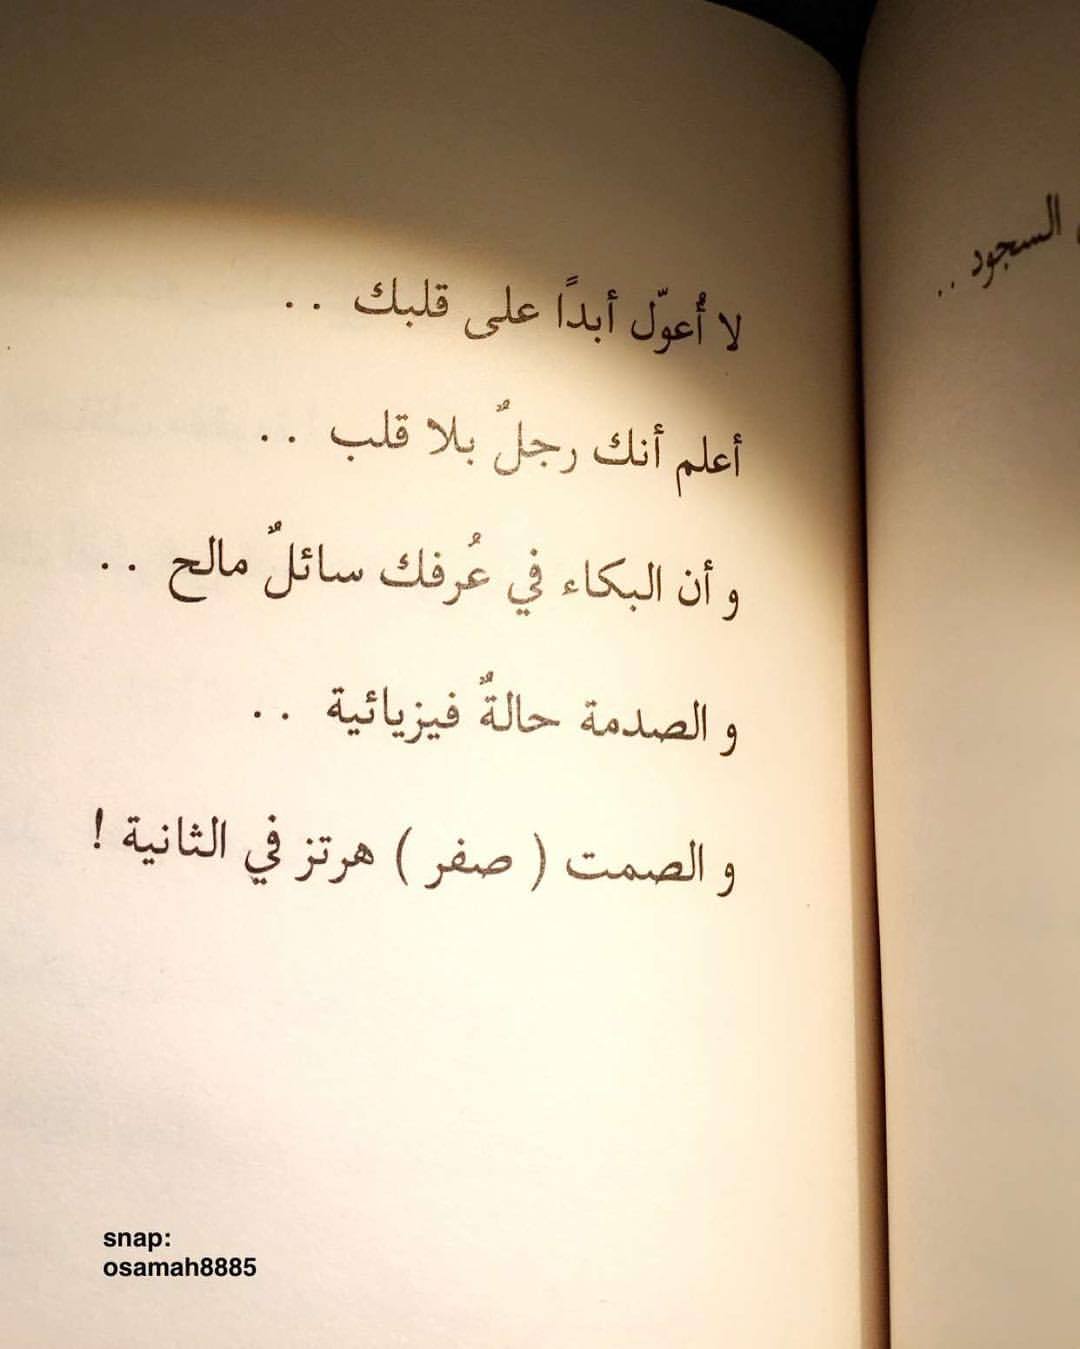 لا أُعوّل أبداً على قلبك . .
أعلم أنك رجلٌ بلا قلب . .
و أن البكاء في عُرفك سائلٌ مالح . .
و الصدمة حالةٌ فيزيائية . .
و الصمت ( صفر ) هرتز في الثانية !
السجود . .
snap:
osamah8885